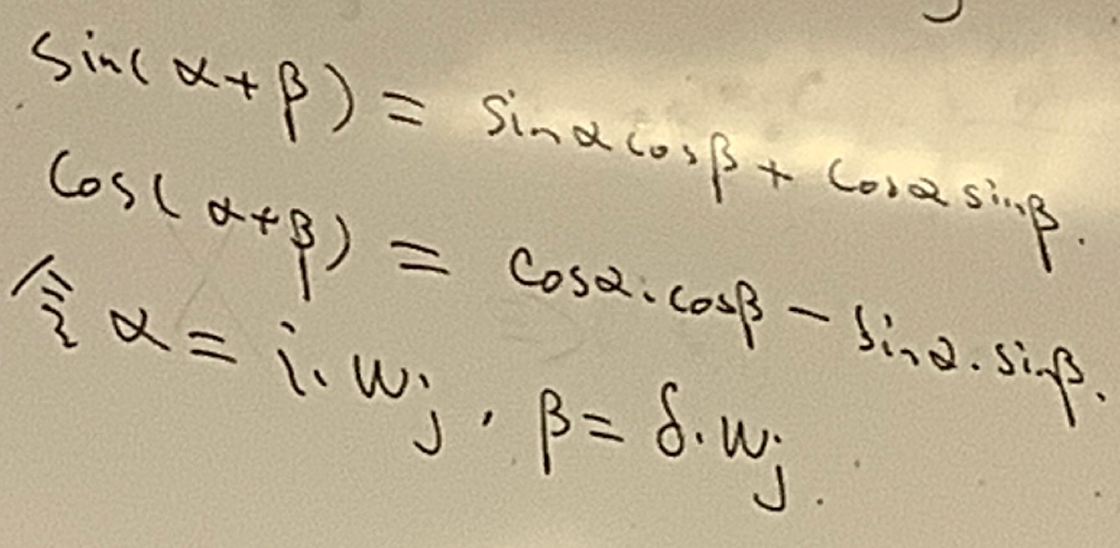 sin(α+β) = sinαcosβ + cosαsinβ.
cos(α+β) = cosα·cosβ - sinα·sinβ.
令 α = i·wj, β = δ·wj.